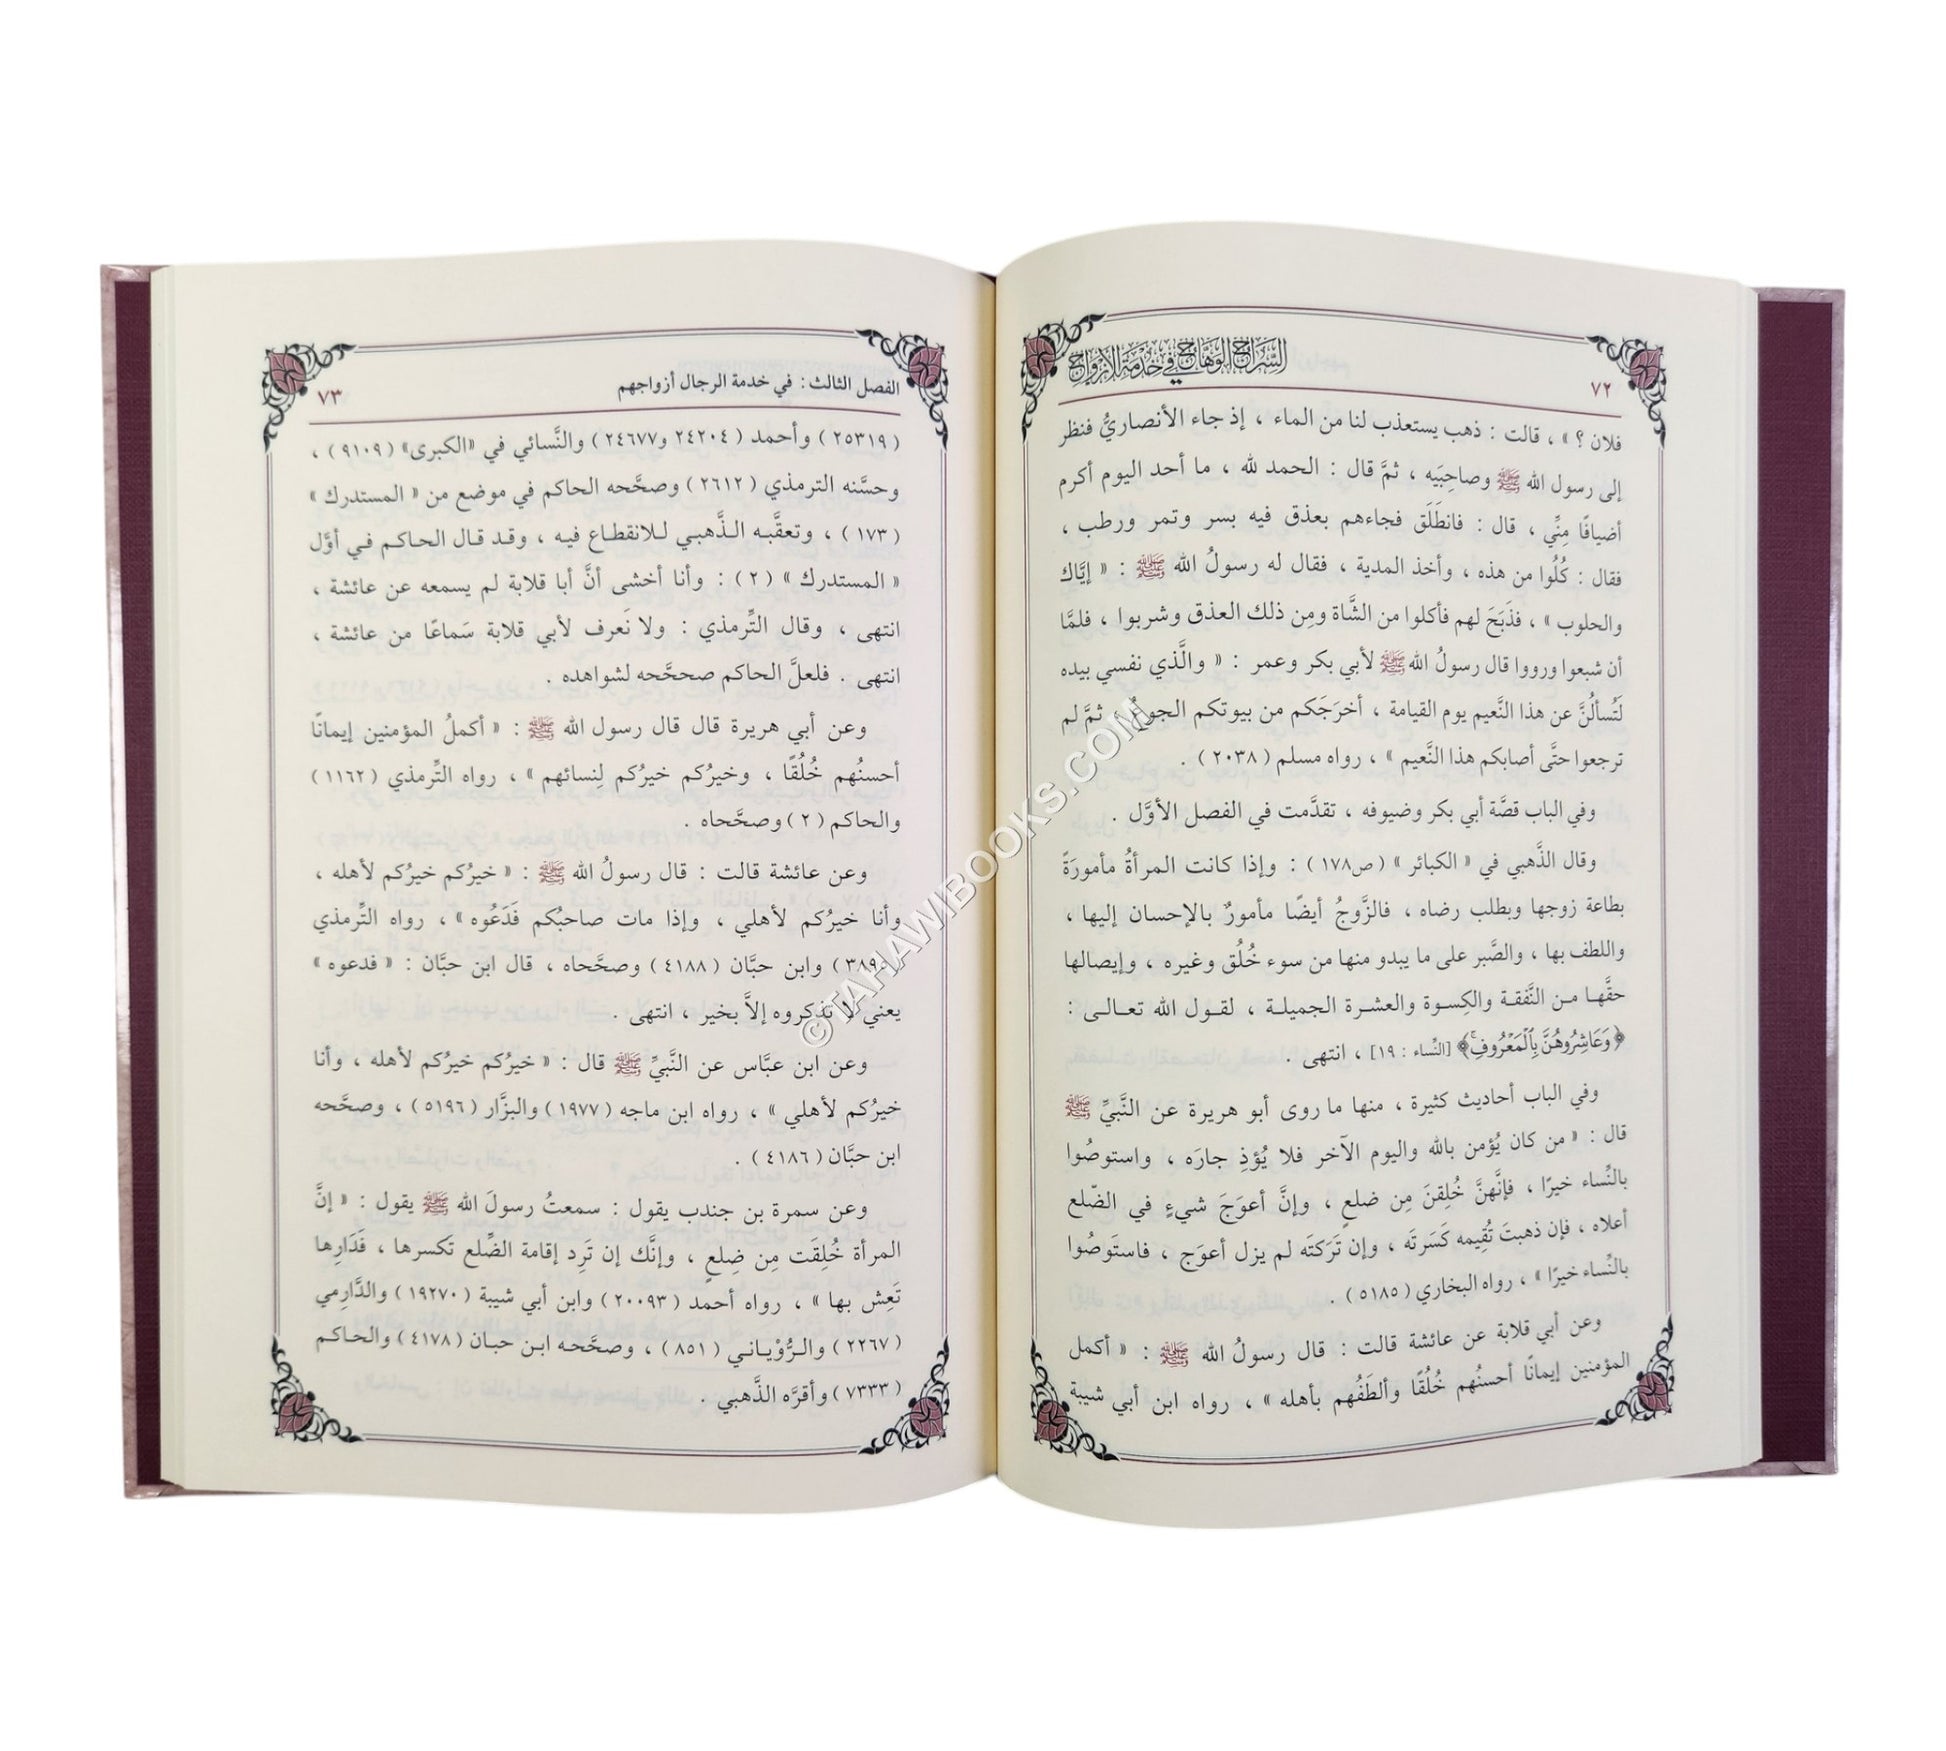 السراج الوهاج في خدمة الأزواج
٧٢
فلان ؟ » ، قالت : ذهب يستعذب لنا من الماء ، إذ جاء الأنصاريُّ فنظر
إلى رسول الله ﷺ وصاحِبَيه ، ثمَّ قال : الحمد لله ، ما أحد اليوم أكرم
أضيافًا مِنِّي ، قال : فانطَلَق فجاءهم بعذق فيه بسر وتمر ورطب ،
فقال : كُلُوا من هذه ، وأخذ المدية ، فقال له رسولُ الله ﷺ : « إيَّاك
والحلوب » ، فذَبَحَ لهم فأكلوا من الشَّاة ومِن ذلك العذق وشربوا ، فلمَّا
أن شبعوا ورووا قال رسولُ الله ﷺ لأبي بكر وعمر : « والَّذي نفسي بيده
لَتُسألُنَّ عن هذا النَّعيم يوم القيامة ، أخرَجَكم من بيوتكم الجوعُ ، ثمَّ لم
ترجعوا حتَّى أصابكم هذا النَّعيم » ، رواه مسلم ( ٢٠٣٨ ) .
وفي الباب قصَّة أبي بكر وضيوفه ، تقدَّمت في الفصل الأوَّل .
وقال الذَّهبي في « الكبائر » ( ص١٧٨ ) : وإذا كانت المرأةُ مأمورَةً
بطاعة زوجها وبطلب رضاه ، فالزَّوجُ أيضًا مأمورٌ بالإحسان إليها ،
واللطف بها ، والصَّبر على ما يبدو منها من سوء خُلُق وغيره ، وإيصالها
حقَّها من النَّفقة والكِسوة والعشرة الجميلة ، لقول الله تعالى :
﴿وَعَاشِرُوهُنَّ بِٱلْمَعْرُوفِۚ﴾ [النِّساء : ١٩] ، انتهى .
وفي الباب أحاديث كثيرة ، منها ما روى أبو هريرة عن النَّبيِّ ﷺ
قال : « من كان يُؤمن بالله واليوم الآخر فلا يُؤذِ جارَه ، واستوصُوا
بالنِّساء خيرًا ، فإنَّهنَّ خُلِقنَ مِن ضلعٍ ، وإنَّ أعوَجَ شيءٍ في الضّلع
أعلاه ، فإن ذهبتَ تُقِيمه كَسَرتَه ، وإن تَرَكتَه لم يزل أعوَج ، فاستَوصُوا
بالنِّساء خيرًا » ، رواه البخاري ( ٥١٨٥ ) .
وعن أبي قلابة عن عائشة قالت : قال رسولُ الله ﷺ : « أكمل
المؤمنين إيمانًا أحسنُهم خُلُقًا وألطَفُهم بأهله » ، رواه ابن أبي شيبة
الفصل الثالث: في خدمة الرجال أزواجهم
٧٣
( ٢٥٣١٩ ) وأحمد ( ٢٤٢٠٤ و٢٤٦٧٧ ) والنَّسائي في «الكبرى» ( ٩١٠٩ ) ،
وحسَّنه الترمذي ( ٢٦١٢ ) وصحَّحه الحاكم في موضع من « المستدرك »
( ١٧٣ ) ، وتعقَّبه الذَّهبي للانقطاع فيه ، وقد قال الحاكم في أوَّل
« المستدرك » ( ٢ ) : وأنا أخشى أنَّ أبا قلابة لم يسمعه عن عائشة ،
انتهى ، وقال التِّرمذي : ولا نَعرف لأبي قلابة سَماعًا من عائشة ،
انتهى . فلعلَّ الحاكم صححَّحه لشواهده .
وعن أبي هريرة قال قال رسول الله ﷺ : « أكملُ المؤمنين إيمانًا
أحسنُهم خُلُقًا ، وخيرُكم خيرُكم لِنسائهم » ، رواه التِّرمذي ( ١١٦٢ )
والحاكم ( ٢ ) وصحَّحاه .
وعن عائشة قالت : قال رسولُ الله ﷺ : « خيرُكم خيرُكم لأهله ،
وأنا خيرُكم لأهلي ، وإذا مات صاحبُكم فَدَعُوه » ، رواه التِّرمذي
( ٣٨٩٥ ) وابن حبَّان ( ٤١٨٨ ) وصحَّحاه ، قال ابن حبَّان : « فدعوه »
يعني لا تذكروه إلاَّ بخير ، انتهى .
وعن ابن عبَّاس عن النَّبيِّ ﷺ قال : « خيرُكم خيرُكم لأهله ، وأنا
خيرُكم لأهلي » ، رواه ابن ماجه ( ١٩٧٧ ) والبزَّار ( ٥١٩٦ ) ، وصحَّحه
ابن حبَّان ( ٤١٨٦ ) .
وعن سمرة بن جندب يقول : سمعتُ رسولَ الله ﷺ يقول : « إنَّ
المرأة خُلِقَت مِن ضِلعٍ ، وإنَّك إن تَرِد إقامة الضِّلع تَكسرها ، فَدَارِها
تَعِش بها » ، رواه أحمد ( ٢٠٠٩٣ ) وابن أبي شيبة ( ١٩٢٧٠ ) والدَّارِمي
( ٢٢٦٧ ) والرُّوْياني ( ٨٥١ ) ، وصحَّحه ابن حبان ( ٤١٧٨ ) والحاكم
( ٧٣٣٣ ) وأقرَّه الذَّهبي .
© TAHAWIBOOKS.COM